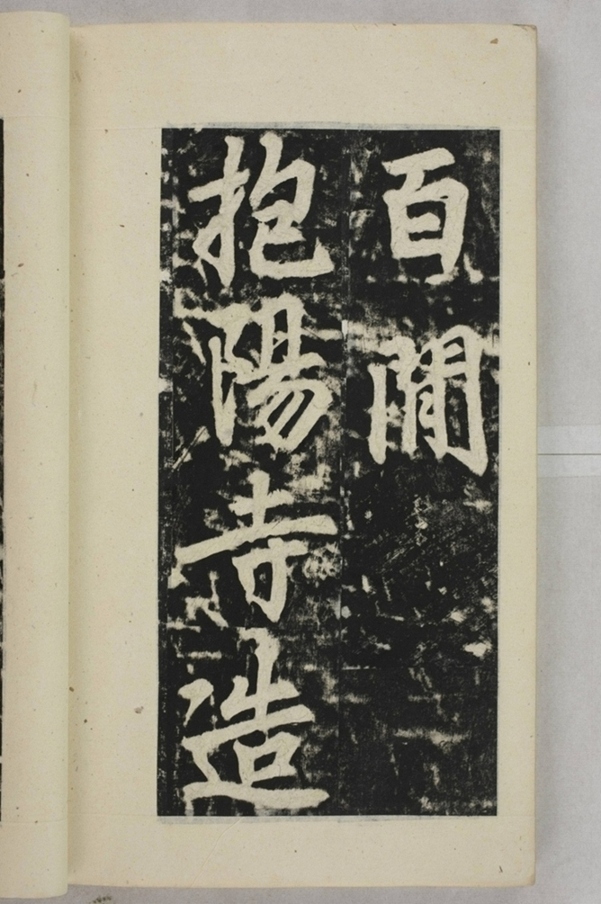 百閒
抱陽寺造